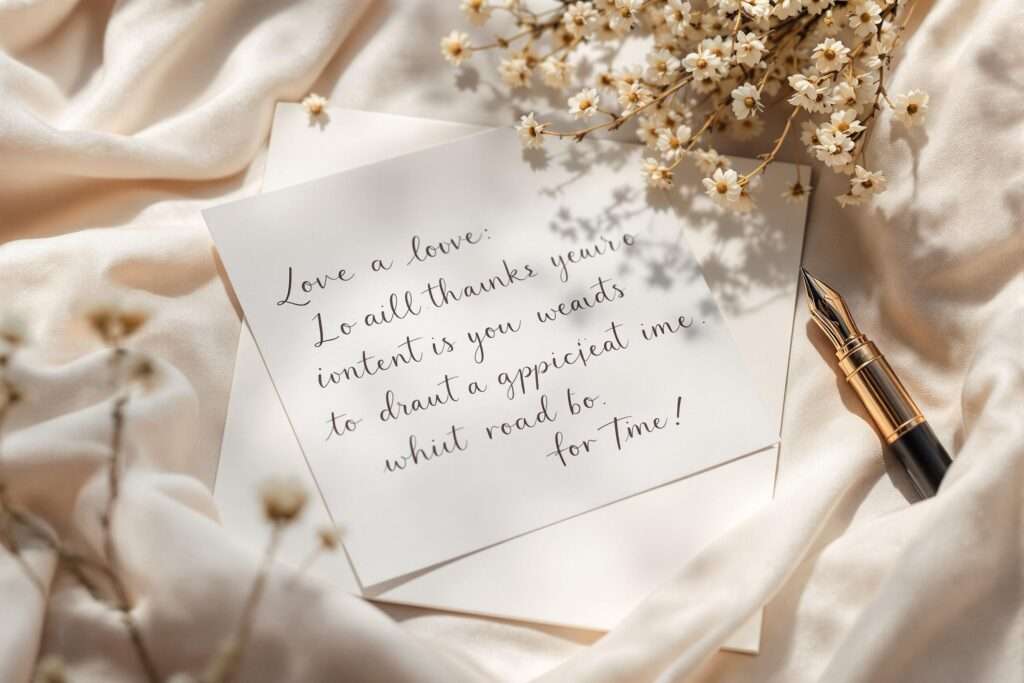 Love a loove:
Lo aill thaunks yeuro
iontent is you weauds
to draut a gppicjeat ime.
whiit road bo.
for Time!